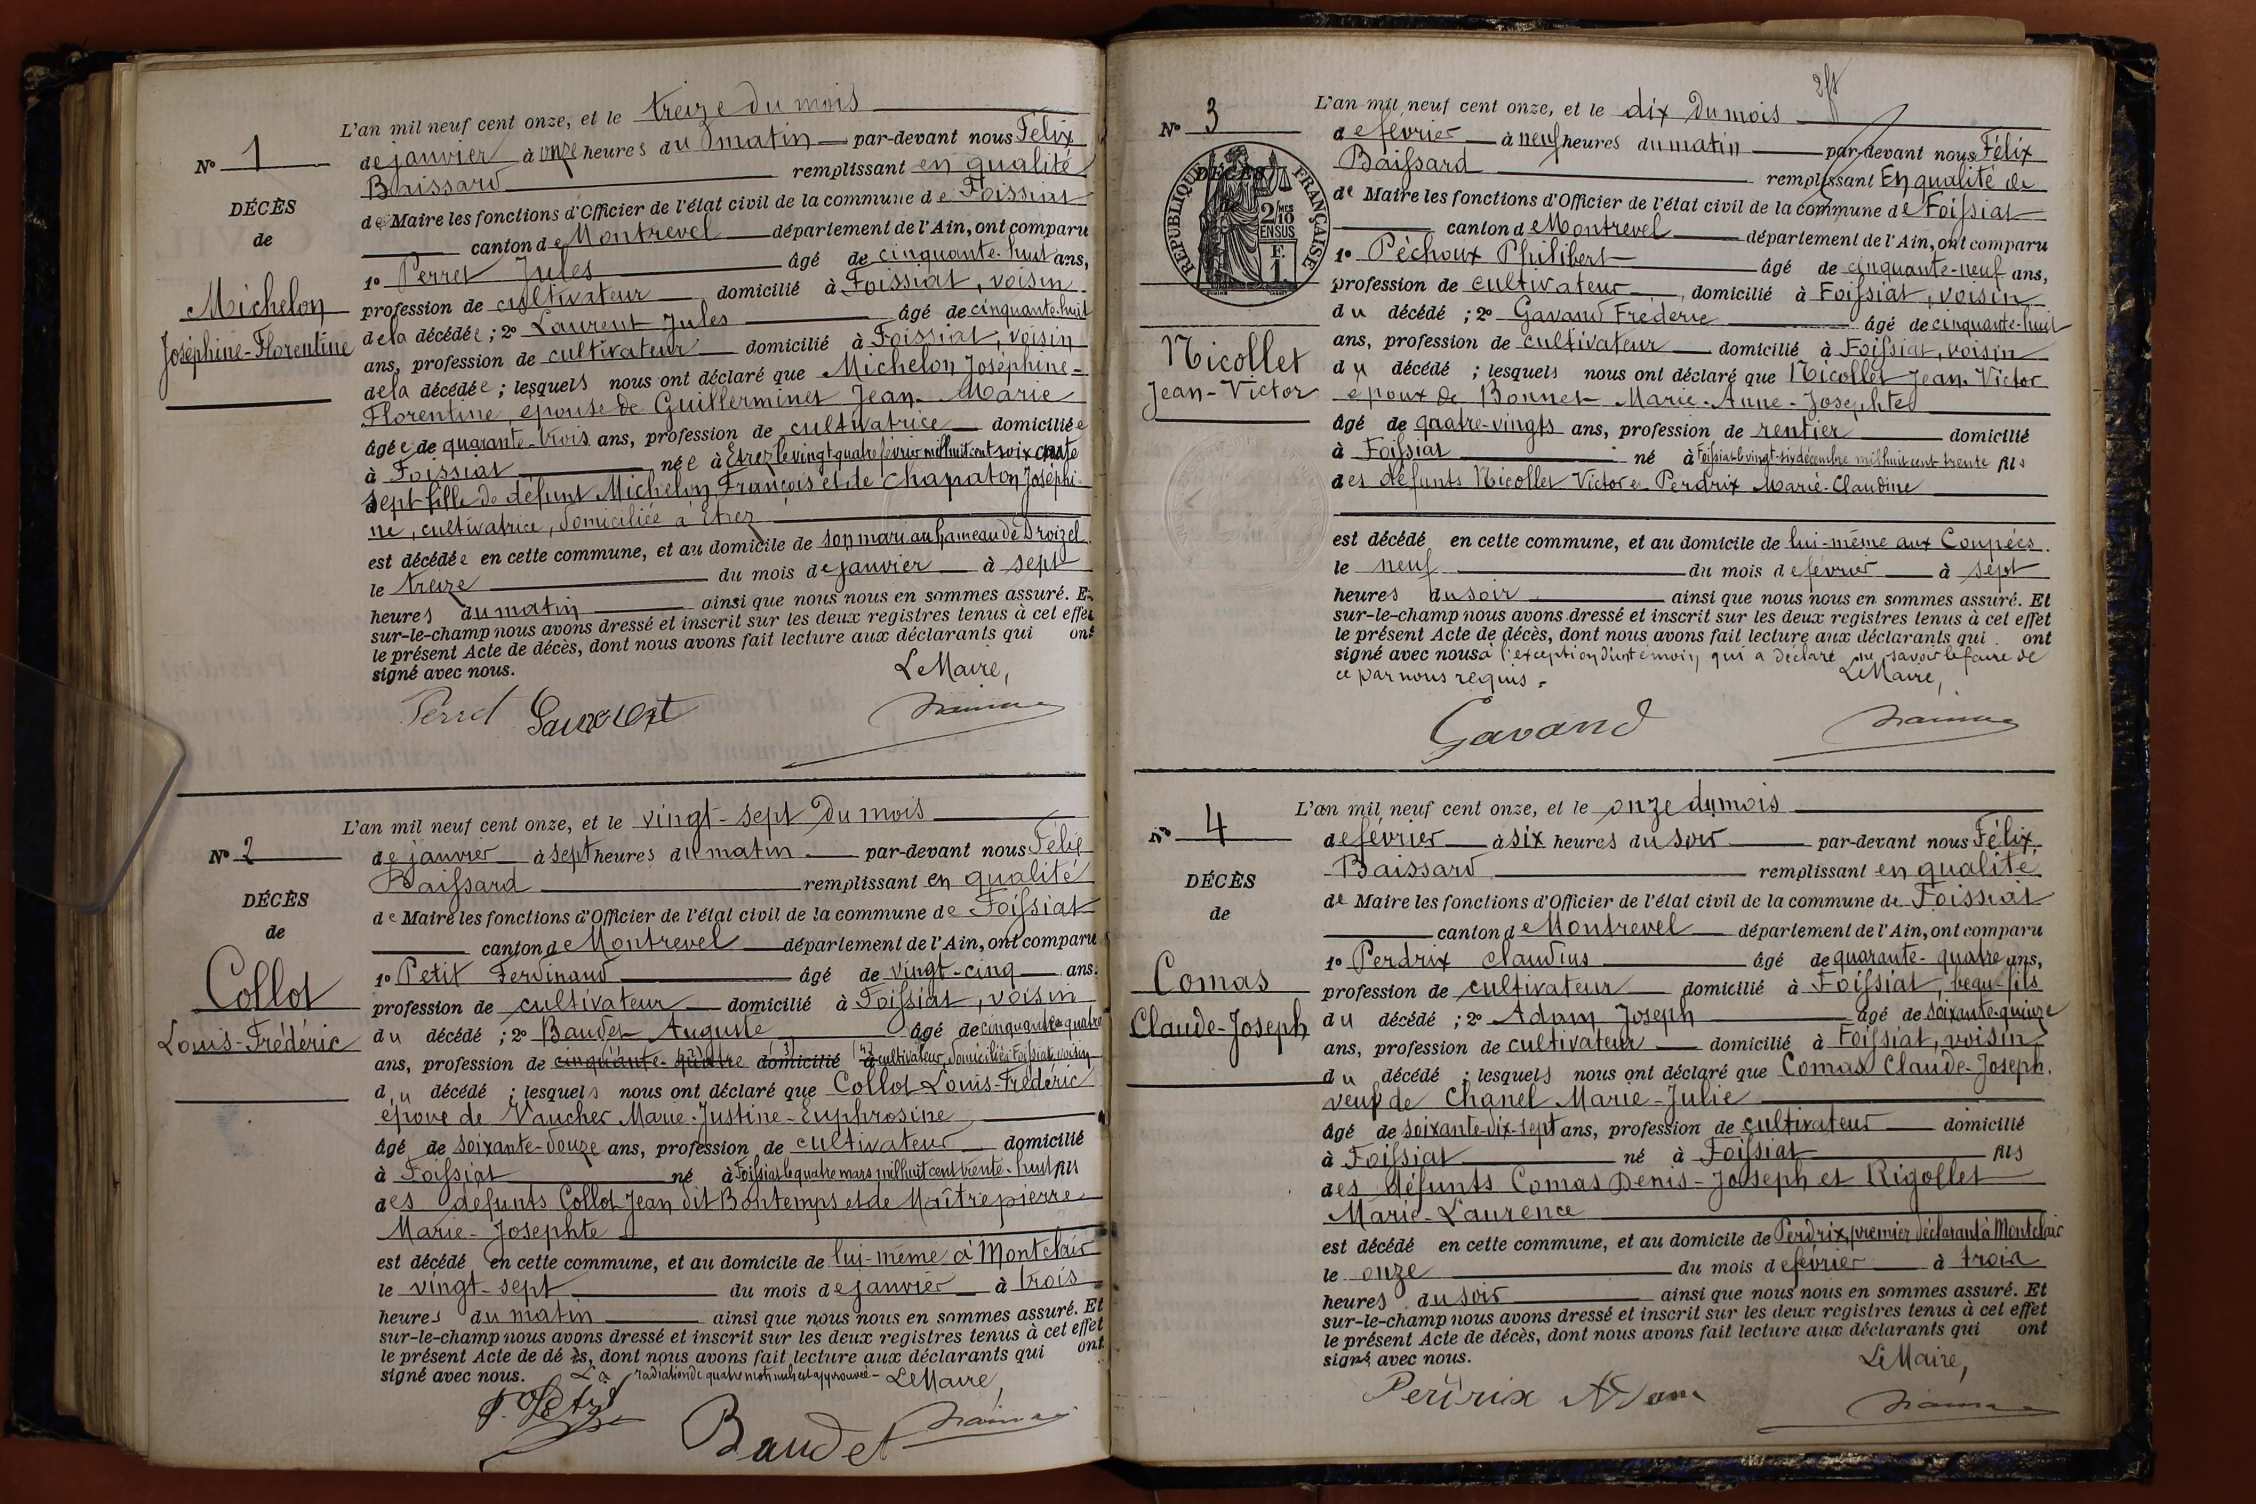 L'an mil neuf cent onze, et le treize du mois
N° 1
de janvier à onze heures du matin par-devant nous Félix
Baissard remplissant en qualité
DÉCÈS
de Maire les fonctions d'Officier de l'état civil de la commune de Foissiat
de
canton de Montrevel département de l'Ain, ont comparu
1° Perret Jules âgé de cinquante-huit ans,
Michelon
profession de cultivateur domicilié à Foissiat, voisin
Joséphine-Florentine
de la décédée ; 2° Laurent Jules âgé de cinquante-huit
ans, profession de cultivateur domicilié à Foissiat, voisin
de la décédée ; lesquels nous ont déclaré que Michelon Joséphine-
Florentine épouse de Guillerminet Jean-Marie
âgée de quarante-trois ans, profession de cultivatrice domiciliée
à Foissiat née à Etrez le vingt quatre février mil huit cent soixante
sept fille de défunt Michelon François et de Chapaton Joséphi-
ne, cultivatrice, domiciliée à Etrez
est décédée en cette commune, et au domicile de son mari au hameau de Droizel
le treize du mois de janvier à sept
heures du matin ainsi que nous nous en sommes assuré. Et
sur-le-champ nous avons dressé et inscrit sur les deux registres tenus à cet effet
le présent Acte de décès, dont nous avons fait lecture aux déclarants qui ont
signé avec nous.
Le Maire,
Perret Laurent
L'an mil neuf cent onze, et le vingt-sept du mois
N° 2
de janvier à sept heures du matin par-devant nous Félix
Baissard remplissant en qualité
DÉCÈS
de Maire les fonctions d'Officier de l'état civil de la commune de Foissiat
de
canton de Montrevel département de l'Ain, ont comparu
1° Petit Ferdinand âgé de vingt-cinq ans.
Collot
profession de cultivateur domicilié à Foissiat, voisin
Louis-Frédéric
du décédé ; 2° Baudet Auguste âgé de cinquante-quatre
ans, profession de cinquante-quatre domicilié à cultivateur, domicilié à Foissiat, voisin
du décédé ; lesquels nous ont déclaré que Collot Louis-Frédéric
époux de Vaucher Marie-Justine-Euphrosine
âgé de soixante-douze ans, profession de cultivateur domicilié
à Foissiat né à Foissiat le quatre mars mil huit cent trente-huit fils
des défunts Collot Jean dit Bontemps et de Maîtrepierre
Marie-Josephte
est décédé en cette commune, et au domicile de lui-même à Montclair
le vingt-sept du mois de janvier à trois
heures du matin ainsi que nous nous en sommes assuré. Et
sur-le-champ nous avons dressé et inscrit sur les deux registres tenus à cet effet
le présent Acte de décès, dont nous avons fait lecture aux déclarants qui ont
signé avec nous. La radiation de quatre mots nuls est approuvée - Le Maire,
F. Petit
Baudet
L'an mil neuf cent onze, et le dix du mois
N° 3
de février à neuf heures du matin par-devant nous Félix
Baissard remplissant En qualité de
DÉCÈS
RÉPUBLIQUE FRANÇAISE
2/10 MES
EN SUS
F. 1
de Maire les fonctions d'Officier de l'état civil de la commune de Foissiat
canton de Montrevel département de l'Ain, ont comparu
1° Péchoux Philibert âgé de cinquante-neuf ans,
profession de cultivateur domicilié à Foissiat, voisin
du décédé ; 2° Gavand Frédéric âgé de cinquante-huit
ans, profession de cultivateur domicilié à Foissiat, voisin
Nicollet
du décédé ; lesquels nous ont déclaré que Nicollet Jean-Victor
Jean-Victor
époux de Bonnet Marie-Anne-Josephte
âgé de quatre-vingts ans, profession de rentier domicilié
à Foissiat né à Foissiat le vingt-six décembre mil huit cent trente fils
des défunts Nicollet Victor et Perdrix Marie-Claudine
est décédé en cette commune, et au domicile de lui-même aux Coupées.
le neuf du mois de février à sept
heures du soir ainsi que nous nous en sommes assuré. Et
sur-le-champ nous avons dressé et inscrit sur les deux registres tenus à cet effet
le présent Acte de décès, dont nous avons fait lecture aux déclarants qui ont
signé avec nous à l'exception d'un témoin qui a déclaré ne savoir le faire de
ce par nous requis.
Le Maire,
Gavand
L'an mil neuf cent onze, et le onze du mois
N° 4
de février à six heures du soir par-devant nous Félix
Baissard remplissant en qualité
DÉCÈS
de Maire les fonctions d'Officier de l'état civil de la commune de Foissiat
de
canton de Montrevel département de l'Ain, ont comparu
1° Perdrix Claudius âgé de quarante-quatre ans,
Comas
profession de cultivateur domicilié à Foissiat, beau-fils
Claude-Joseph
du décédé ; 2° Adam Joseph âgé de soixante-quinze
ans, profession de cultivateur domicilié à Foissiat, voisin
du décédé ; lesquels nous ont déclaré que Comas Claude-Joseph.
veuf de Chanel Marie-Julie
âgé de soixante-dix-sept ans, profession de cultivateur domicilié
à Foissiat né à Foissiat fils
des défunts Comas Denis-Joseph et Rigollet
Marie-Laurence
est décédé en cette commune, et au domicile de Perdrix, premier déclarant à Montclair
le onze du mois de février à trois
heures du soir ainsi que nous nous en sommes assuré. Et
sur-le-champ nous avons dressé et inscrit sur les deux registres tenus à cet effet
le présent Acte de décès, dont nous avons fait lecture aux déclarants qui ont
signé avec nous.
Le Maire,
Perdrix Adam